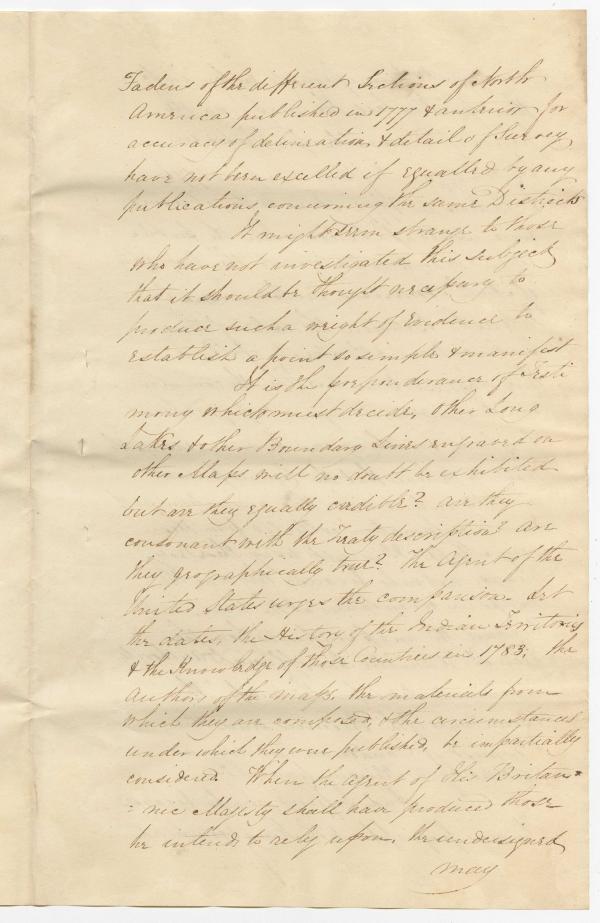 Fadens of the different Sections of North
America published in 1777 & anterior for
accuracy of delineation, & detail of Survey
have not been excelled if equalled by any
publications, concerning the same Districts
It might seem strange to those
who have not investigated this subject,
that it should be thought necessary to
produce such a weight of Evidence to
establish a point so simple & manifest
It is the preponderance of Testi
mony which must decide, other Long
Lakes & other Boundary Lines engraved on
other Maps will no doubt be exhibited
but are they equally credible? are they
consonant with the Treaty description? are
they geographically true? The Agent of the
United States urges the comparison. Let
the dates, the History of the Indian Territories
& the Knowledge of those Countries in 1783; the
Authors of the maps, the materials from
which they are composed, & the circumstances
under which they were published, be impartially
considered. When the agent of His Britan=
=nic Majesty shall have produced those
he intends to rely upon, the undersigned
may